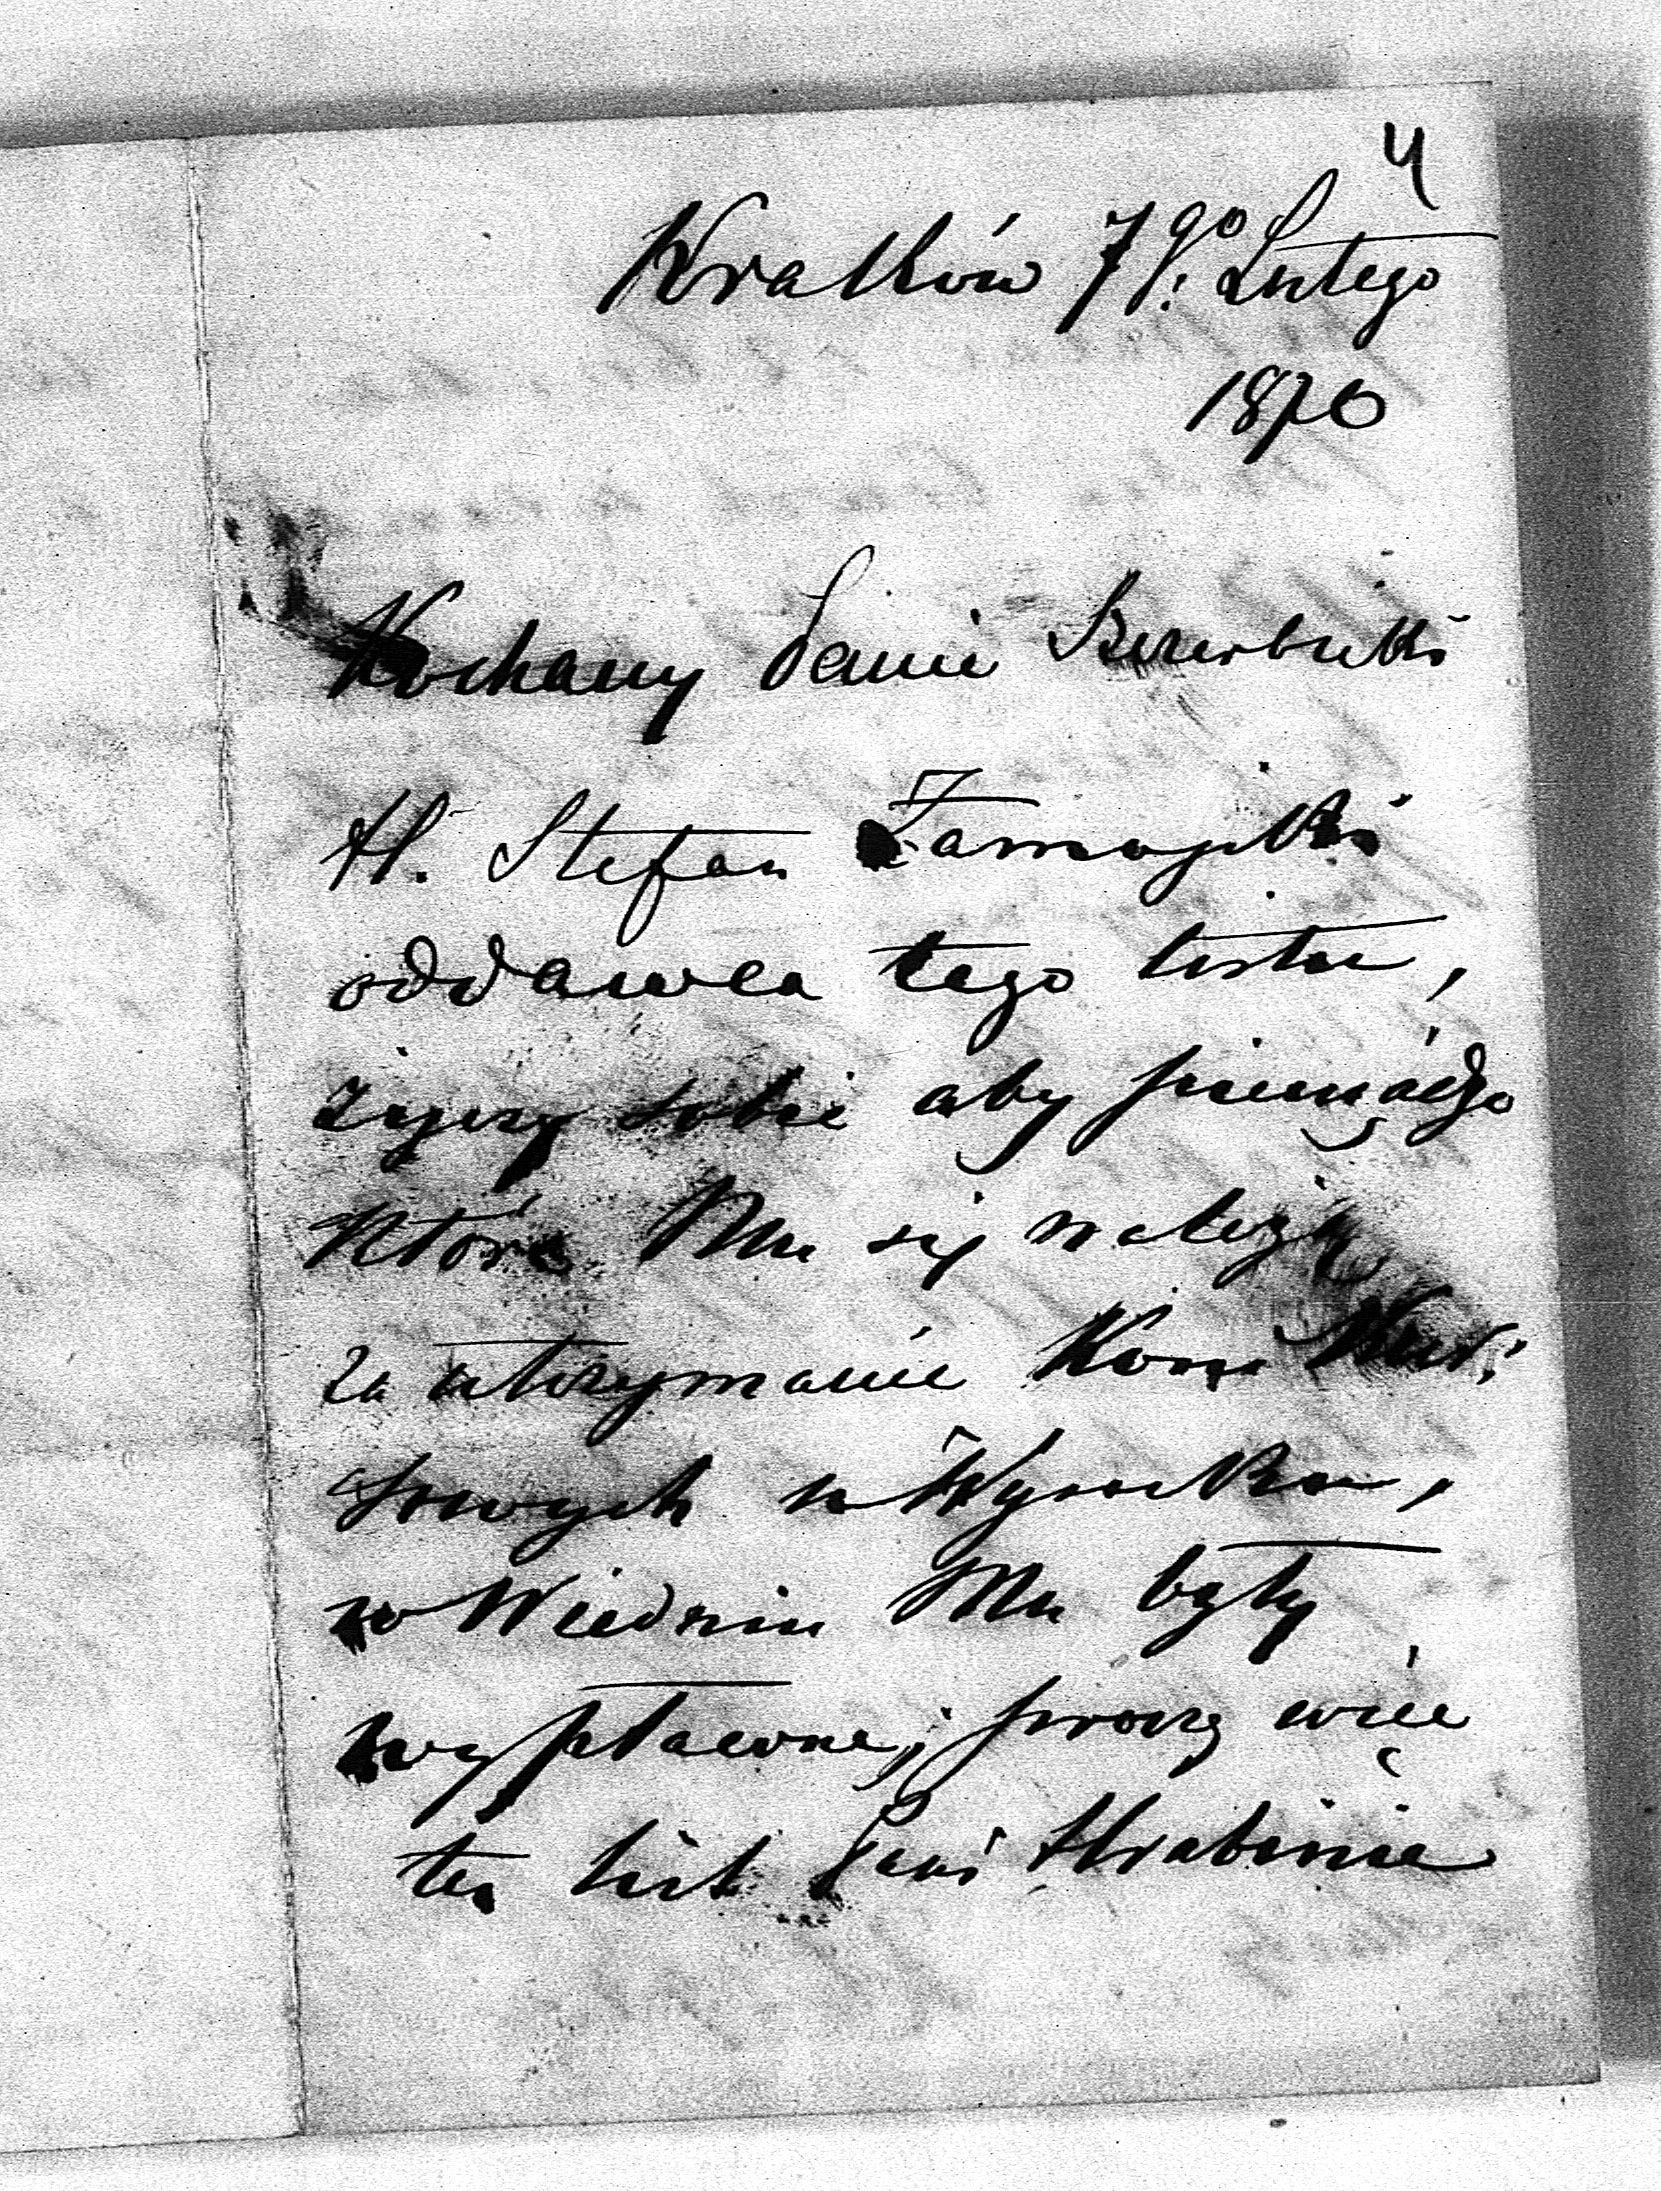 4
Kraków 7go Lutego
1870
Kochany Panie
H. Stefan Zamoyski
oddawca tego listu,
życzy sobie aby pieniądze
które Mu się należą
za utrzymanie Koni
sowych w Wysocku,
w Wiedniu Mu były
wypłacone; proszę więc
ten list Pani Hrabinie